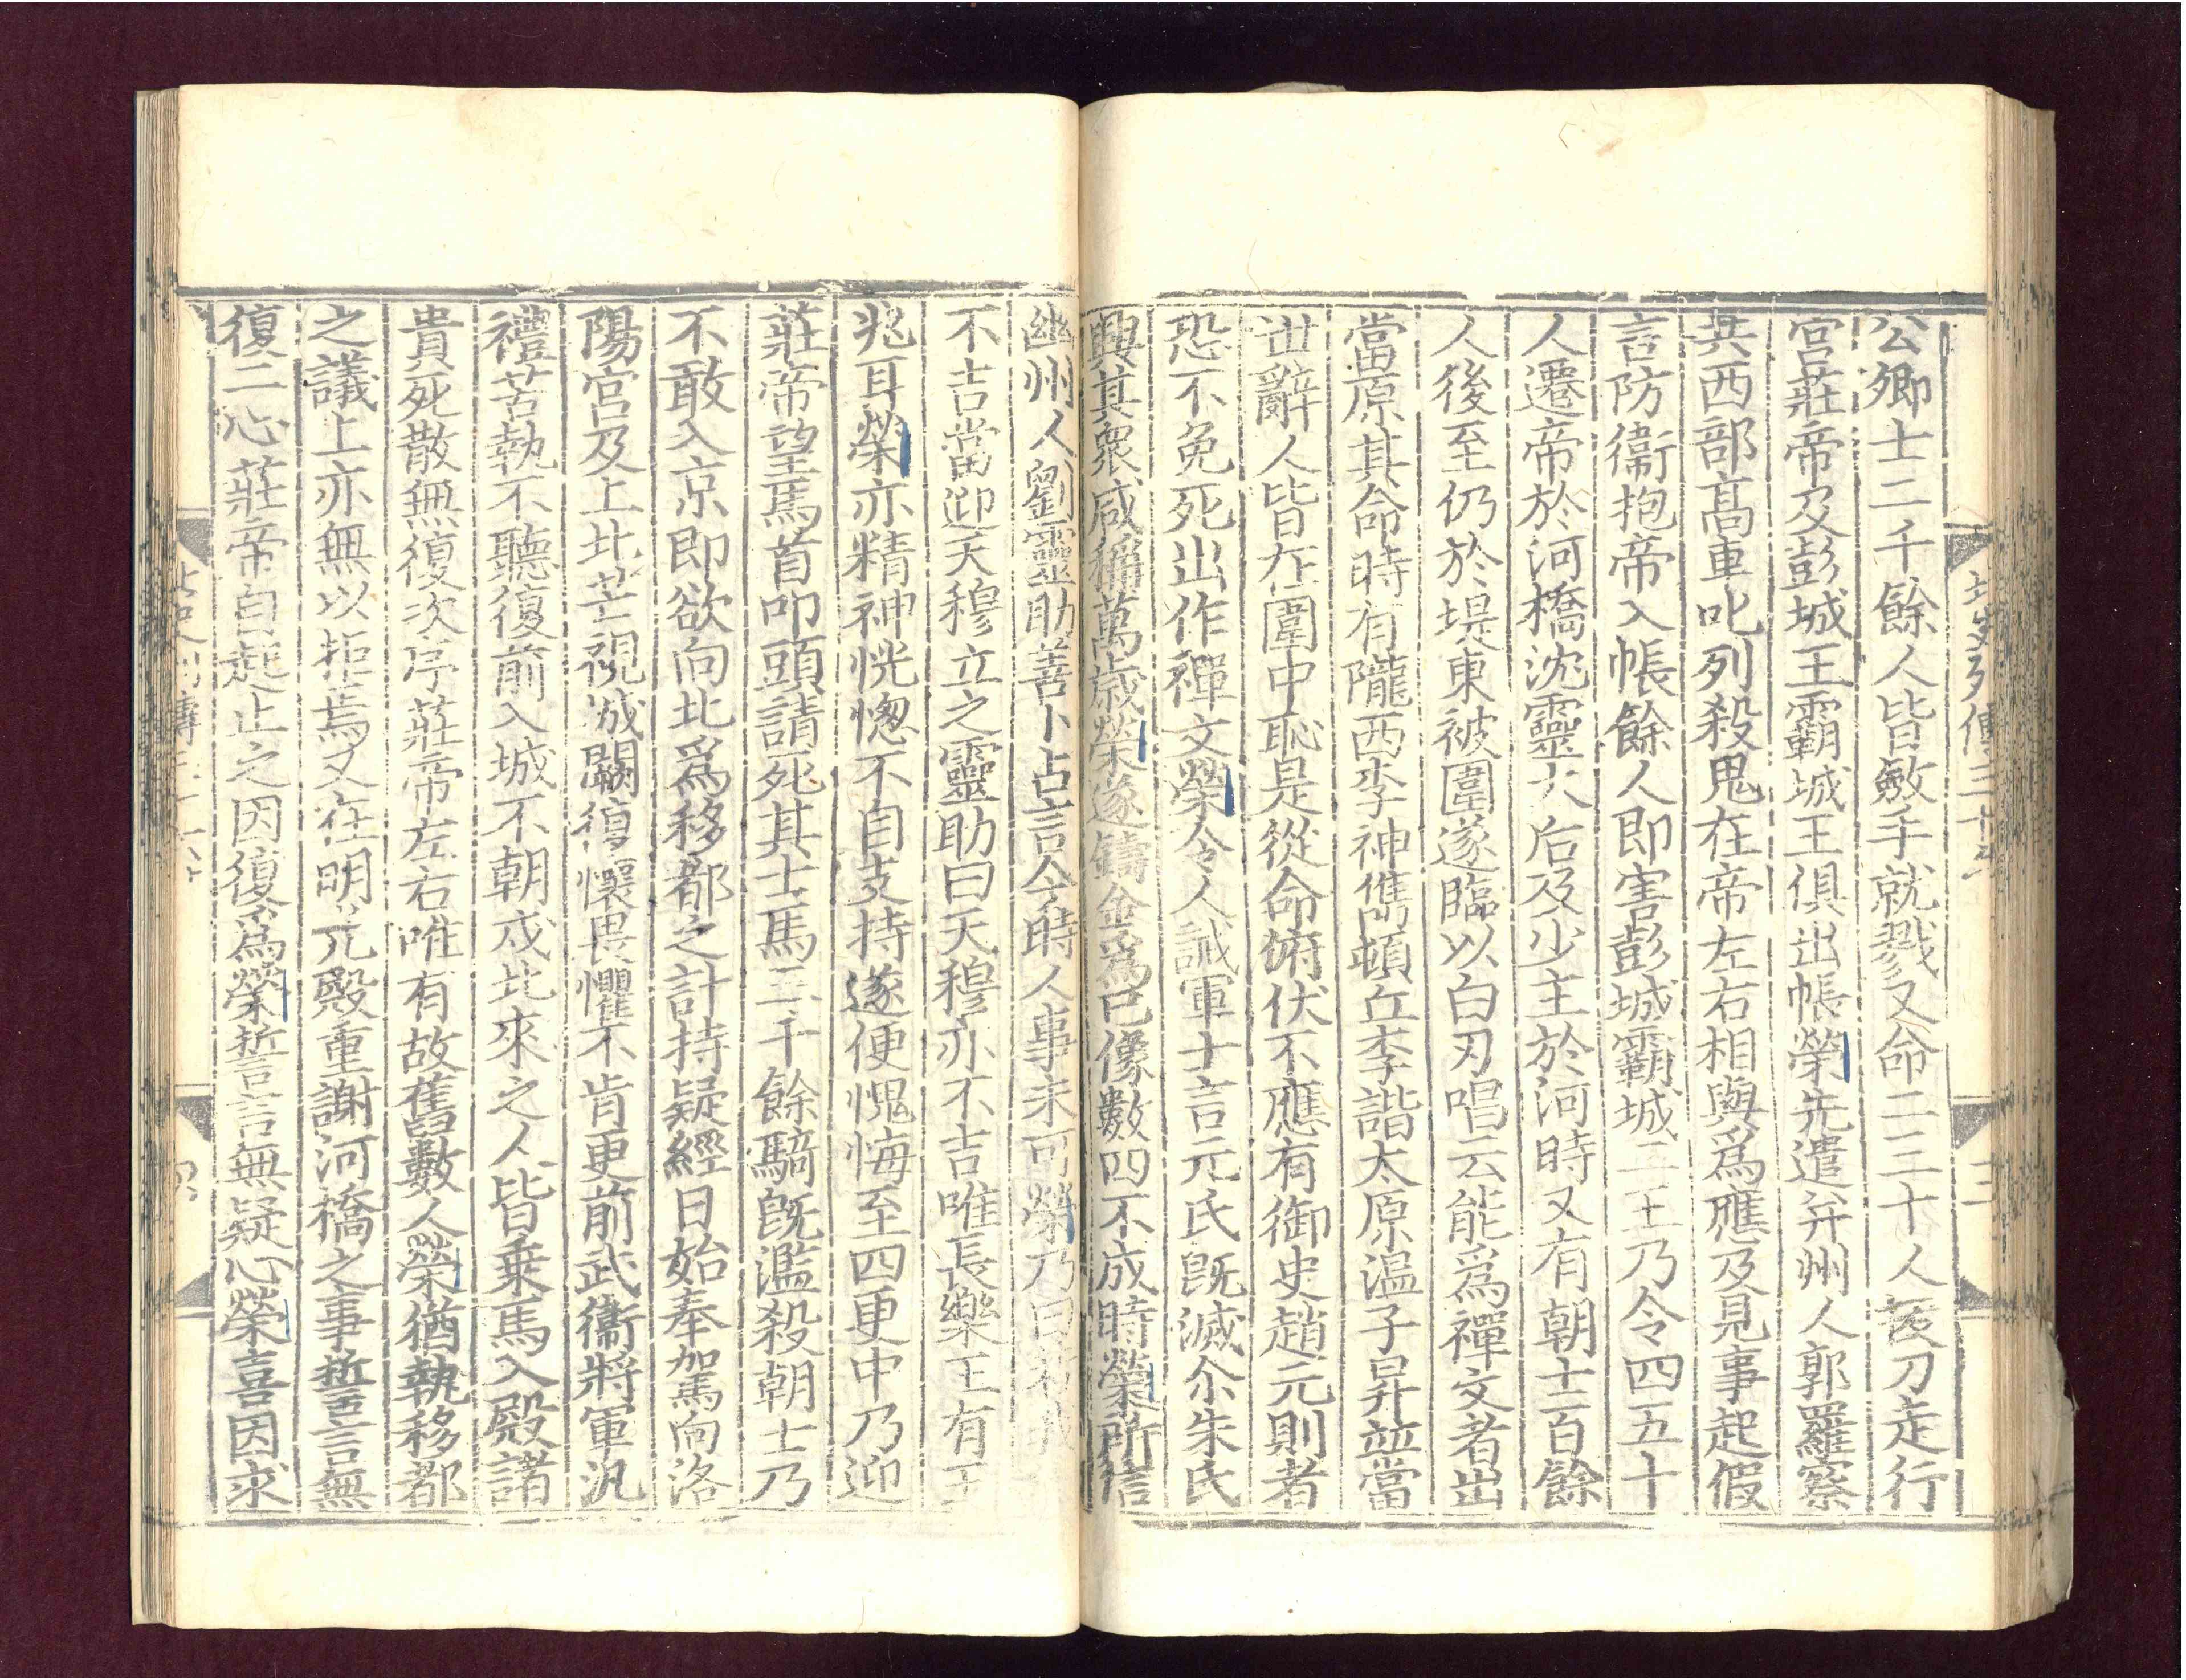 北史列傳三十六
三
公卿士二千餘人皆斂手就戮又命二三十人拔刀走行
宮莊帝及彭城王霸城王俱出帳榮先遣并州人郭羅察
共西部髙車叱列殺鬼在帝左右相與爲應及見事起假
言防衞抱帝入帳餘人即害彭城霸城二王乃令四五十
人遷帝於河橋沈靈太后及少主於河時又有朝士百餘
人後至仍於堤東被圍遂臨以白刃唱云能爲禪文者出
當原其命時有隴西李神儁頓丘李諧太原溫子昇並當
世辭人皆在圍中恥是從命俯伏不應有御史趙元則者
恐不免死出作禪文榮令人誡軍士言元氏旣滅尒朱氏
興其衆咸稱萬歲榮遂鑄金爲己像數四不成時榮所信
幽州人劉靈助善卜占言今時人事未可榮乃曰若我
不吉當迎天穆立之靈助曰天穆亦不吉唯長樂王有王
兆耳榮亦精神恍惚不自支持遂便愧悔至四更中乃迎
莊帝望馬首叩頭請死其士馬三千餘騎旣濫殺朝士乃
不敢入京即欲向北爲移都之計持疑經日始奉駕向洛
陽宮及上北芒視城闕復懷畏懼不肯更前武衞將軍汎
禮苦執不聽復前入城不朝戍北來之人皆乗馬入殿諸
貴死散無復次序莊帝左右唯有故舊數人榮猶執移都
之議上亦無以拒焉又在明光殿重謝河橋之事誓言無
復二心莊帝自起止之因復爲榮誓言無疑心榮喜因求
北史列傳三十六
四